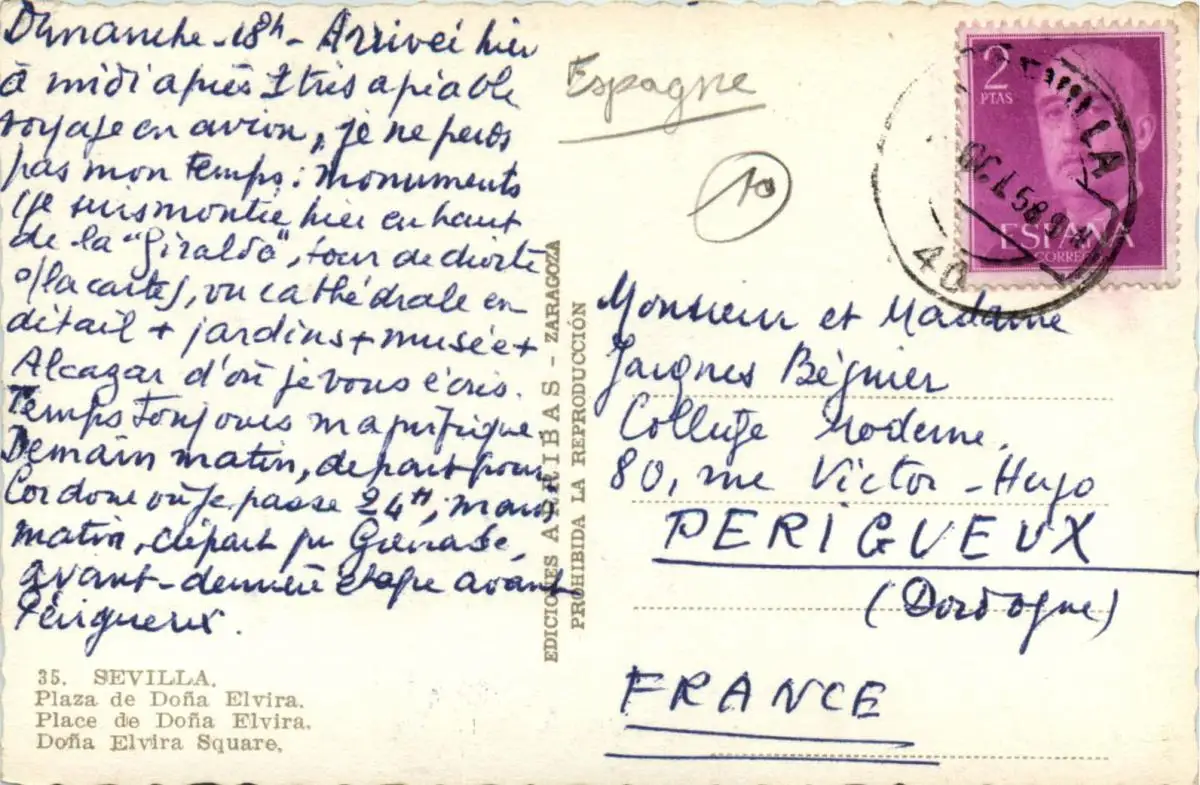 Dimanche - 18h - Arrivée hier
à midi après 1 très agréable
voyage en avion, je ne perds
pas mon temps : monuments
(je suis montée hier en haut
de la "Giralda", tour de droite
s/la carte), vu cathédrale en
détail + jardins + musée +
Alcazar d'où je vous écris.
Temps toujours magnifique
Demain matin, départ pour
Cordoue où je passe 24H, mardi
matin, départ pr Grenade,
avant-dernière étape avant
Périgueux.
35. SEVILLA.
Plaza de Doña Elvira.
Place de Doña Elvira.
Doña Elvira Square.
EDICIONES ARRIBAS - ZARAGOZA
PROHIBIDA LA REPRODUCCIÓN
Espagne
10
2
PTAS
ESPAÑA
CORREOS
40
Monsieur et Madame
Jacques Bégnier
Collège Moderne.
80, rue Victor-Hugo
PERIGUEUX
(Dordogne)
FRANCE